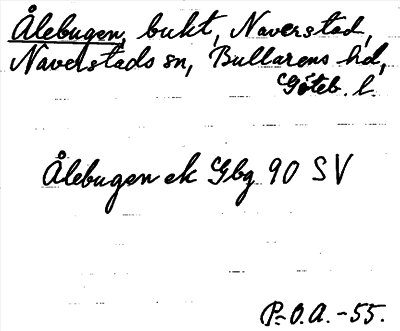 Ålebugen, bukt, Naverstad,
Naverstads sn, Bullarens hd,
Göteb. l.
Ålebugen ek Gbg 90 SV
P.O.A. -55.